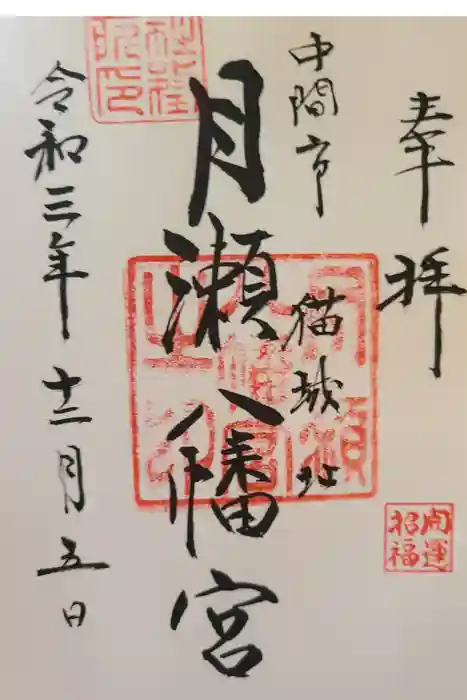 奉拝
中間市
猫城址
月瀬八幡宮
令和三年十二月五日
開運
招福